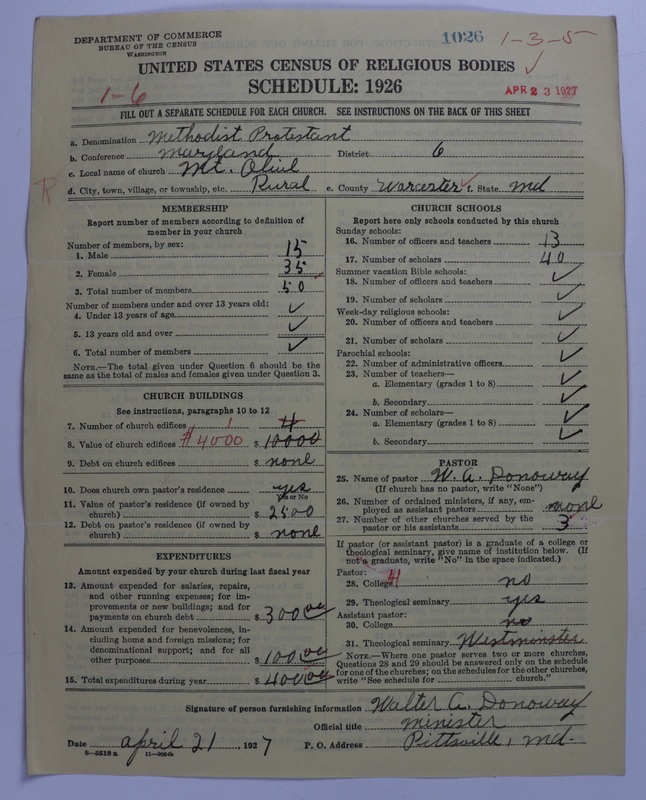 DEPARTMENT OF COMMERCE
BUREAU OF THE CENSUS
WASHINGTON
1026
1-3-5
UNITED STATES CENSUS OF RELIGIOUS BODIES
SCHEDULE: 1926
1-6
APR 23 1927
FILL OUT A SEPARATE SCHEDULE FOR EACH CHURCH. SEE INSTRUCTIONS ON THE BACK OF THIS SHEET
a. Denomination Methodist Protestant
b. Conference Maryland District 6
c. Local name of church Mt. Olive
R
d. City, town, village, or township, etc. Rural e. County Worcester f. State Md
MEMBERSHIP
Report number of members according to definition of
member in your church
Number of members, by sex:
1. Male 15
2. Female 35
3. Total number of members 50
Number of members under and over 13 years old:
4. Under 13 years of age ✓
5. 13 years old and over ✓
6. Total number of members ✓
NOTE.—The total given under Question 6 should be the
same as the total of males and females given under Question 3.
CHURCH BUILDINGS
See instructions, paragraphs 10 to 12
7. Number of church edifices 1 4
8. Value of church edifices $4000 $ 10000
9. Debt on church edifices $ none
10. Does church own pastor's residence yes
Yes or No
11. Value of pastor's residence (if owned by
church) $ 2500
12. Debt on pastor's residence (if owned by
church) $ none
EXPENDITURES
Amount expended by your church during last fiscal year
13. Amount expended for salaries, repairs,
and other running expenses; for im-
provements or new buildings; and for
payments on church debt $ 300 00
14. Amount expended for benevolences, in-
cluding home and foreign missions; for
denominational support; and for all
other purposes $ 100 00
15. Total expenditures during year $ 400 00
CHURCH SCHOOLS
Report here only schools conducted by this church
Sunday schools:
16. Number of officers and teachers 13
17. Number of scholars 40
Summer vacation Bible schools:
18. Number of officers and teachers ✓
19. Number of scholars ✓
Week-day religious schools:
20. Number of officers and teachers ✓
21. Number of scholars ✓
Parochial schools:
22. Number of administrative officers ✓
23. Number of teachers—
a. Elementary (grades 1 to 8) ✓
b. Secondary ✓
24. Number of scholars—
a. Elementary (grades 1 to 8) ✓
b. Secondary ✓
PASTOR
25. Name of pastor W. A. Donoway
(If church has no pastor, write "None")
26. Number of ordained ministers, if any, em-
ployed as assistant pastors none
27. Number of other churches served by the
pastor or his assistants 3
If pastor (or assistant pastor) is a graduate of a college or
theological seminary, give name of institution below. (If
not a graduate, write "No" in the space indicated.)
Pastor:
28. College 4 no
29. Theological seminary yes
Assistant pastor:
30. College no
31. Theological seminary Westminster
NOTE.—Where one pastor serves two or more churches,
Questions 28 and 29 should be answered only on the schedule
for one of the churches; on the schedules for the other churches,
write "See schedule for church."
Signature of person furnishing information Walter A. Donoway
Official title minister
Date april 21, 1927 P. O. Address Pittsville, Md.